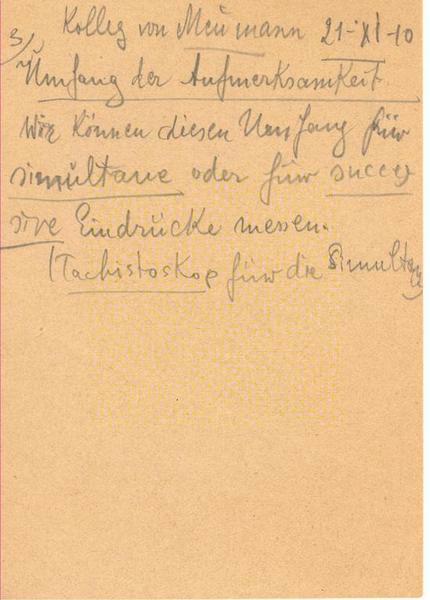 Kolleg von Meumann 21-XI-10
3)
Umfang der Aufmerksamkeit.
Wir können diesen Umfang für
simultane oder für succes
sive Eindrücke messen.
(Tachistoskop für die Simultane)